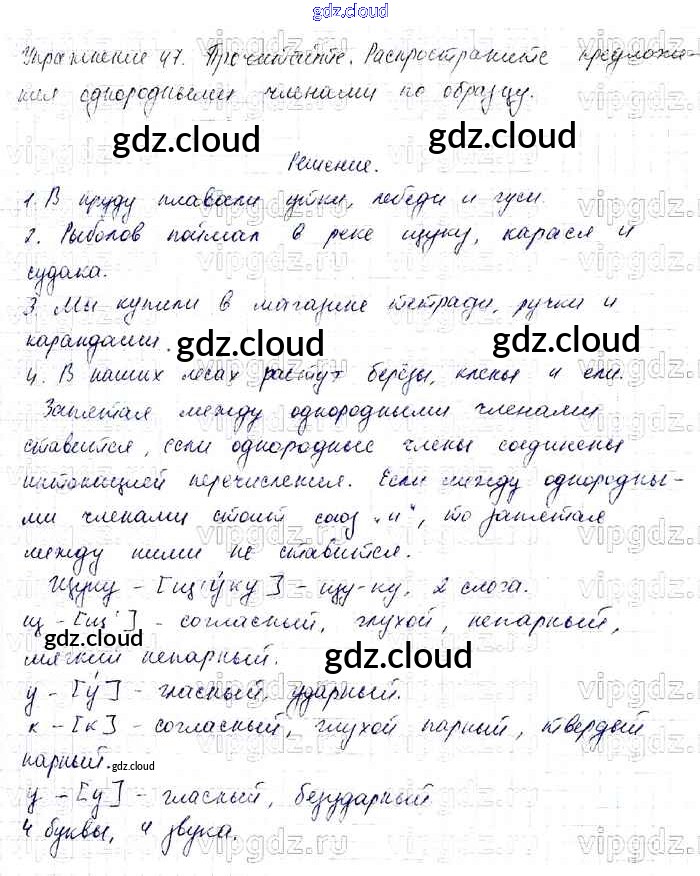 gdz.cloud
Упражнение 47. Прочитайте. Распространите предложе-
ния однородными членами по образцу.
gdz.cloud gdz.cloud
Решение.
1. В пруду плавали утки, лебеди и гуси.
2. Рыболов поймал в реке щуку, карася и
судака.
3. Мы купили в магазине тетради, ручки и
карандаши.
gdz.cloud gdz.cloud
4. В наших лесах растут берёзы, клены и ели.
Запятая между однородными членами
ставится, если однородные члены соединены
интонацией перечисления. Если между однородны-
ми членами стоит союз „и“, то запятая
между ними не ставится.
Щуку – [щ'у́ку] – щу-ку, 2 слога.
щ – [щ'] – согласный, глухой, непарный,
gdz.cloud gdz.cloud
мягкий непарный.
у – [у́] – гласный, ударный.
к – [к] – согласный, глухой парный, твердый
парный.
gdz.cloud
у – [у] – гласный, безударный
4 буквы, 4 звука.
vipgdz.ru